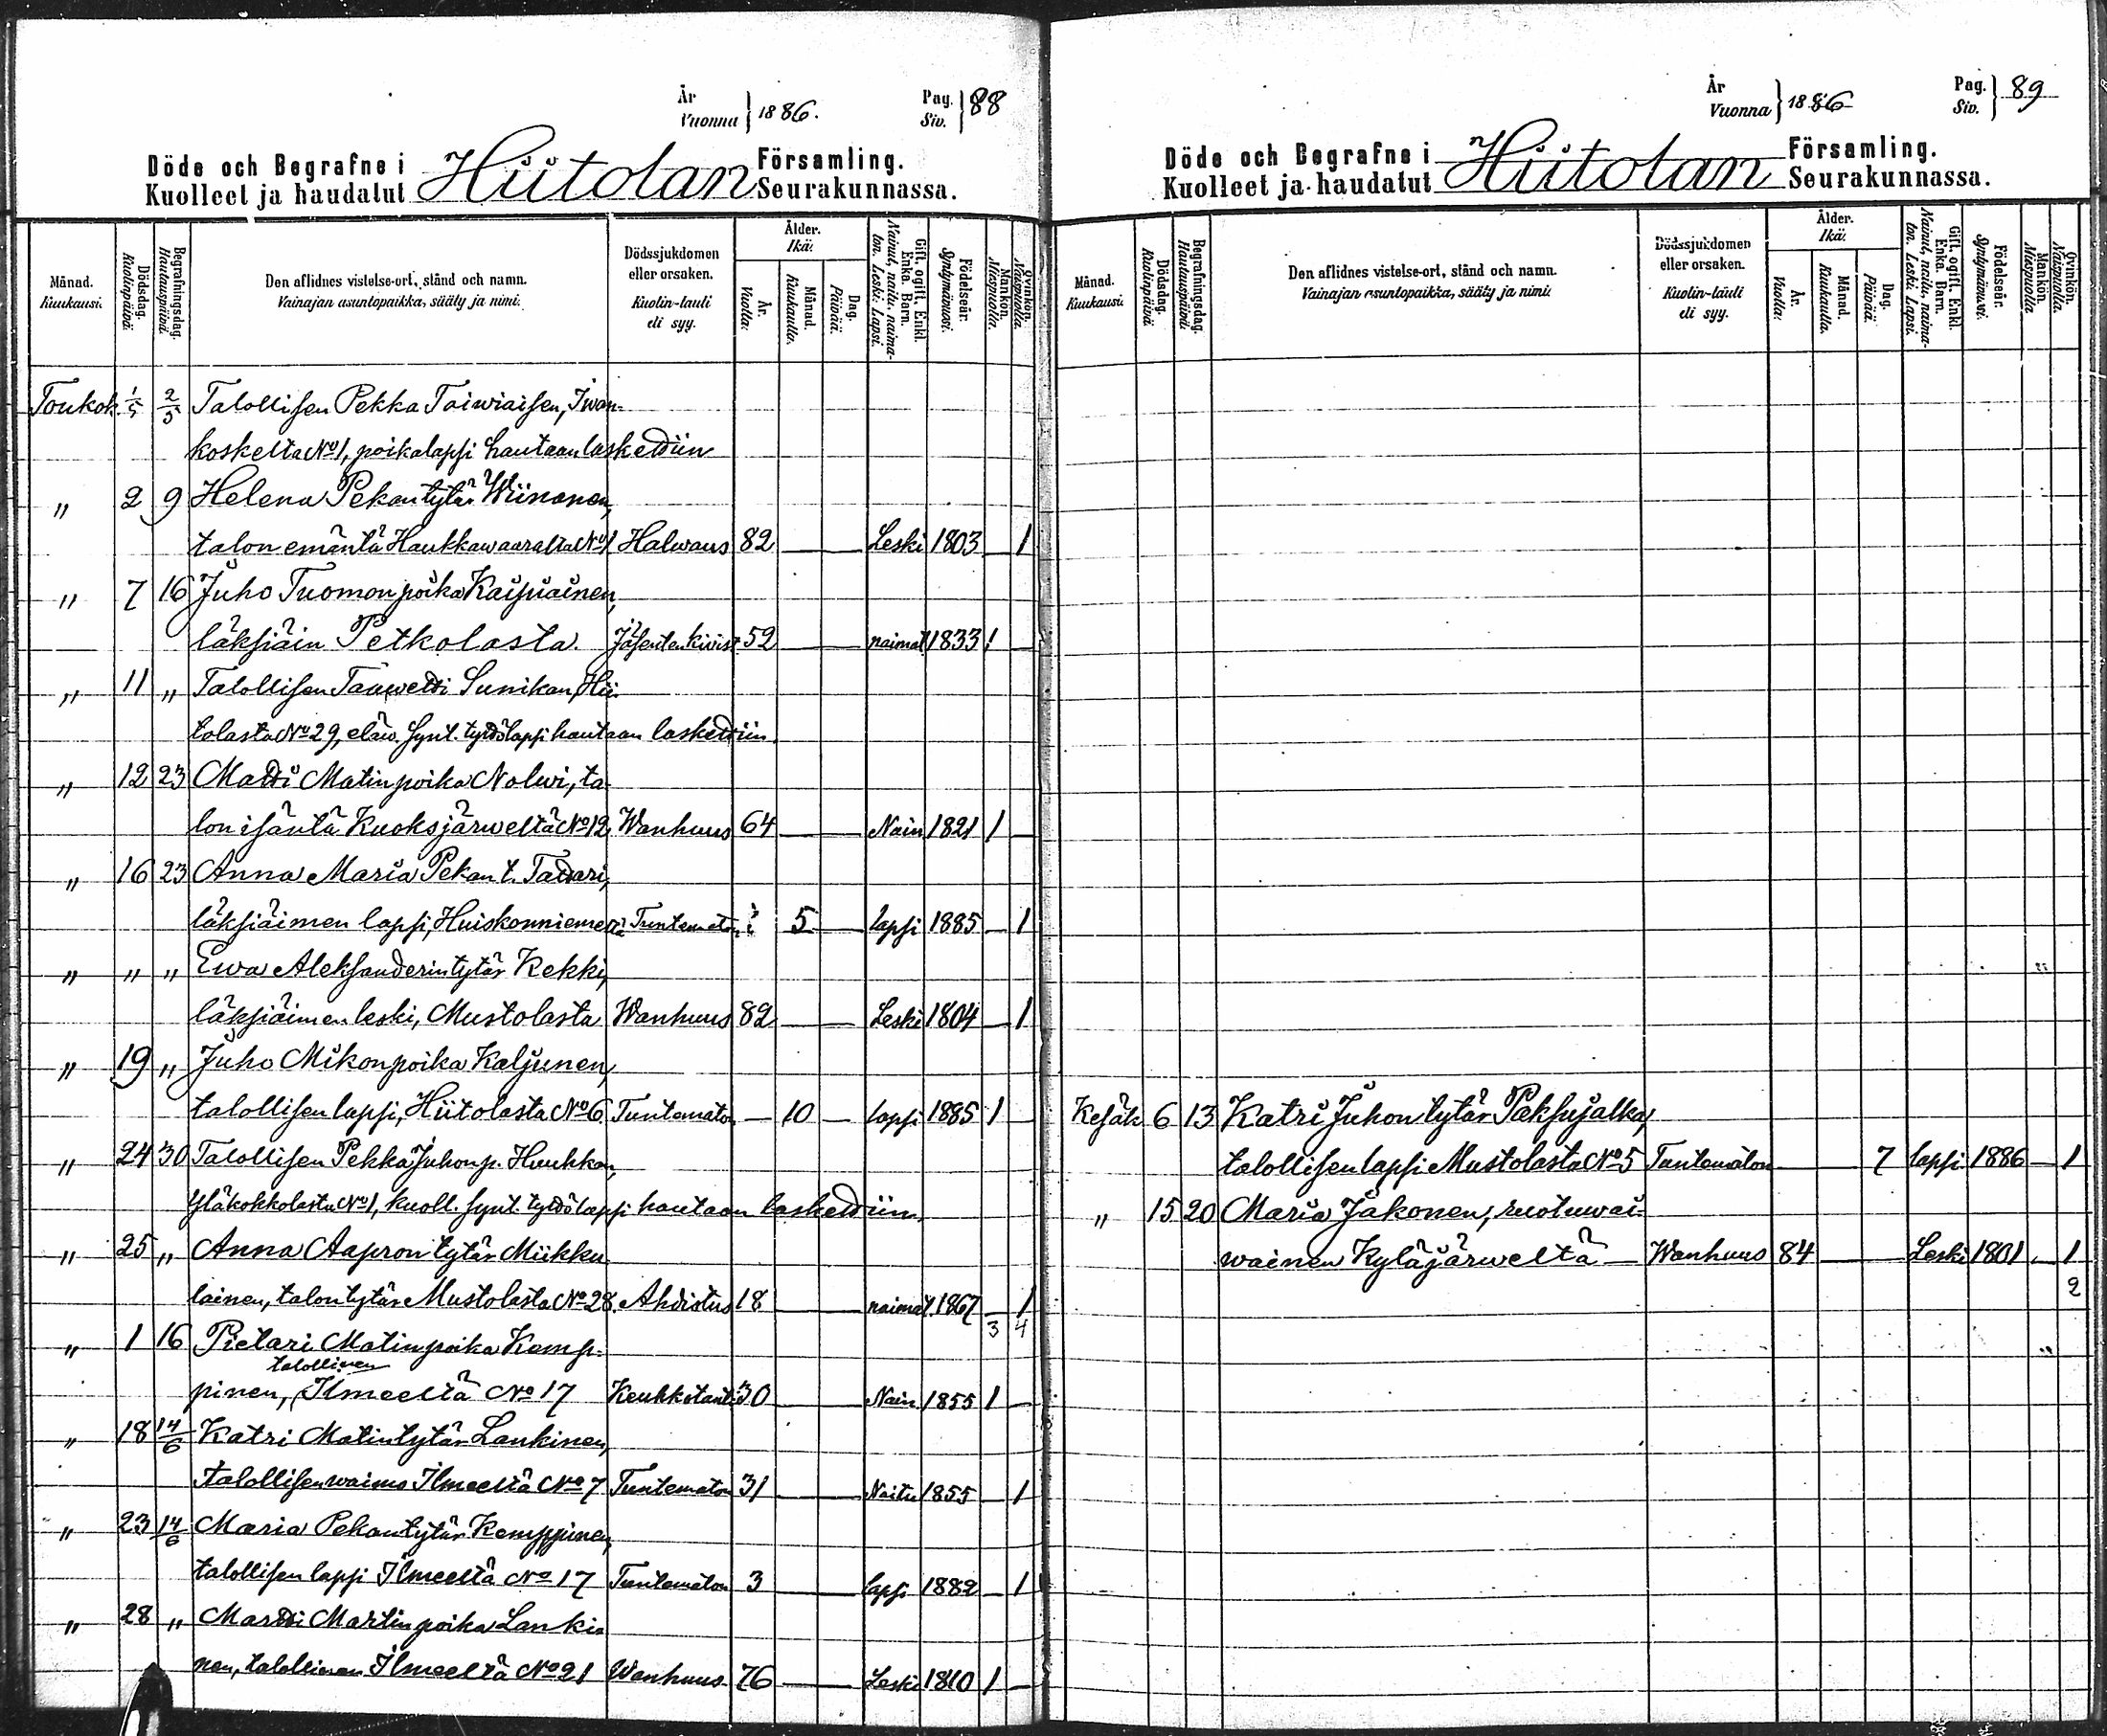 År
Vuonna } 1886.
Pag.
Siv. } 88
Döde och Begrafne i Hiitolan Församling.
Kuolleet ja haudatut Seurakunnassa.
Månad. Kuukausi.
Dödsdag. Kuolinpäivä
Begrafningsdag. Hautauspäivä.
Den aflidnes vistelse-ort, stånd och namn.
Vainajan asuntopaikka, sääty ja nimi.
Dödssjukdomen eller orsaken.
Kuolin-tauti eli syy.
Ålder. Ikä.
År. Vuotta.
Månad. Kuukautta.
Dag. Päivää.
Gift, ogift. Enkl. Enka. Barn.
Nainut, naitu, naimaton. Leski. Lapsi.
Födelseår. Syntymävuosi.
Mankön. Miespuolia.
Qvinkön. Naispuolia.
Toukok. 1/5 2/5 Talollisen Pekka Taiwiaisen, Iwan-
koskelta No 1, poikalapsi hautaan laskettiin
" 2 9 Helena Pekantytär Wiinanen,
talon emäntä Haukkawaaralta No 1 Halwaus 82 — — Leski 1803 — 1
" 7 16 Juho Tuomonpoika Kaipiainen,
läksiäin Petkolasta. Jäsentenkivist. 52 — — naimat. 1833 1 —
" 11 " Talollisen Taawetti Sunikan, Hii-
tolasta No 29, eläw. synt. tyttölapsi hautaan laskettiin
" 12 23 Matti Matinpoika Nolwi, ta-
lon isäntä Kuoksjärweltä No 12 Wanhuus 64 — — Nain. 1821 1 —
" 16 23 Anna Maria Pekan t. Tattari,
läksiäimen lapsi, Huiskonniemeltä Tuntematon 5 — lapsi 1885 — 1
" " " Ewa Aleksanderintytär Kekki,
läksiäimen leski, Mustolasta Wanhuus 82 — — Leski 1804 — 1
" 19 " Juho Mikonpoika Kaljunen,
talollisen lapsi, Hiitolasta No 6 Tuntematon — 10 — lapsi 1885 1 —
" 24 30 Talollisen Pekka Juhonp. Huuhkan,
Yläkokkolasta No 1, kuoll. synt. tyttölapsi hautaan laskettiin
" 25 " Anna Aaprontytär Miikku-
lainen, talontytär Mustolasta No 28. Ahdistus 18 — — naimat. 1867 — 1
3 4
" 1 16 Pietari Matinpoika Kemp-
talollinen
pinen, Ilmeeltä No 17 Keuhkotauti 30 — — Nain. 1855 1 —
" 18 14/6 Katri Matintytär Lankinen,
talollisen waimo Ilmeeltä No 7 Tuntematon 31 — — Naitu 1855 — 1
" 23 14/6 Maria Pekantytär Kemppinen,
talollisen lapsi Ilmeeltä No 17 Tuntematon 3 — — lapsi 1882 — 1
" 28 " Martti Martinpoika Lanki-
nen, talollinen Ilmeeltä No 21 Wanhuus 76 — — Leski 1810 1 —
År
Vuonna } 1886
Pag.
Siv. } 89
Döde och Begrafne i Hiitolan Församling.
Kuolleet ja haudatut Seurakunnassa.
Månad. Kuukausi.
Dödsdag. Kuolinpäivä
Begrafningsdag. Hautauspäivä.
Den aflidnes vistelse-ort, stånd och namn.
Vainajan asuntopaikka, sääty ja nimi.
Dödssjukdomen eller orsaken.
Kuolin-tauti eli syy.
Ålder. Ikä.
År. Vuotta.
Månad. Kuukautta.
Dag. Päivää.
Gift, ogift. Enkl. Enka. Barn.
Nainut, naitu, naimaton. Leski. Lapsi.
Födelseår. Syntymävuosi.
Mankön. Miespuolia
Qvinkön. Naispuolia.
Kesäk 6 13 Katri Juhontytär Paksujalka,
talollisen lapsi Mustolasta No 5 Tuntematon — — 7 lapsi 1886 — 1
" 15 20 Maria Jäkonen, ruotuwai-
wainen Kyläjärweltä — Wanhuus 84 — — Leski 1801 — 1
2